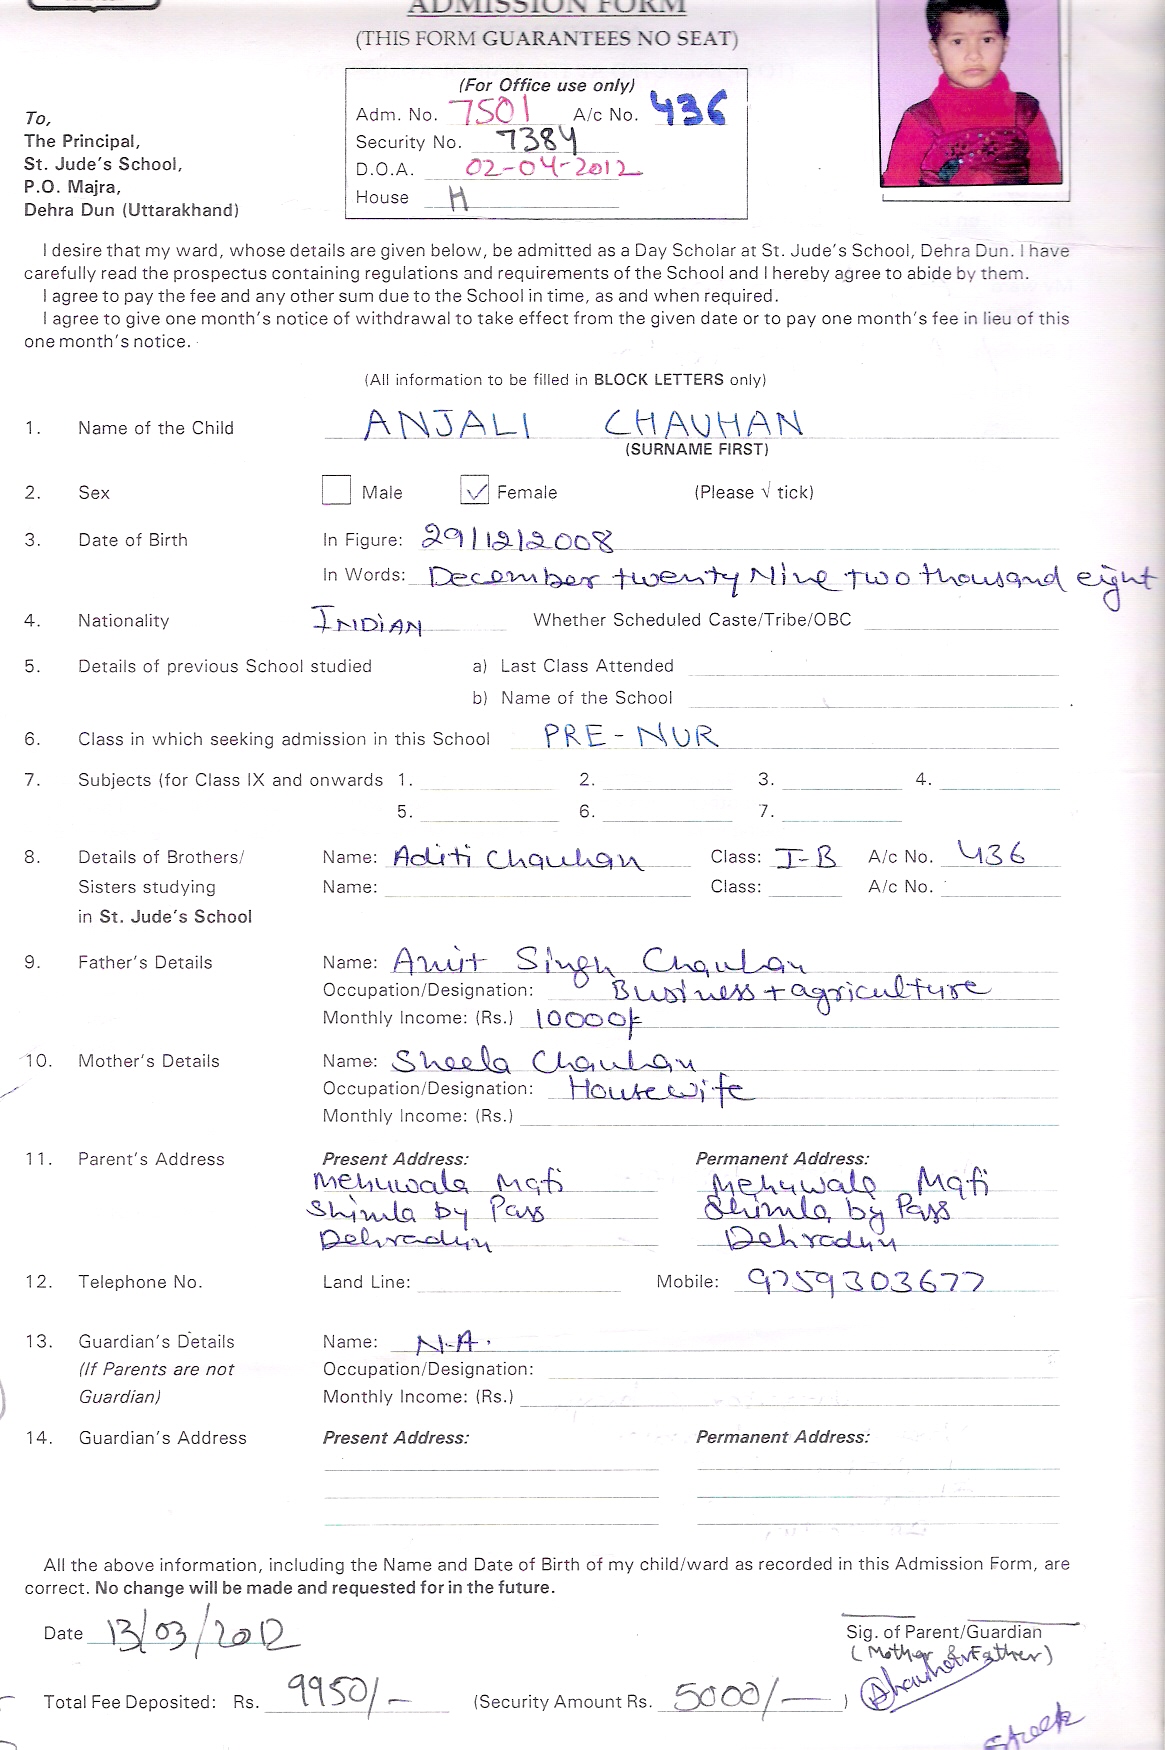 ADMISSION FORM
(THIS FORM GUARANTEES NO SEAT)
(For Office use only)
Adm. No. 7501 A/c No. 436
Security No. 7384
D.O.A. 02-04-2012
House H
To,
The Principal,
St. Jude's School,
P.O. Majra,
Dehra Dun (Uttarakhand)
I desire that my ward, whose details are given below, be admitted as a Day Scholar at St. Jude's School, Dehra Dun. I have
carefully read the prospectus containing regulations and requirements of the School and I hereby agree to abide by them.
I agree to pay the fee and any other sum due to the School in time, as and when required.
I agree to give one month's notice of withdrawal to take effect from the given date or to pay one month's fee in lieu of this
one month's notice.
(All information to be filled in BLOCK LETTERS only)
1. Name of the Child ANJALI CHAUHAN
(SURNAME FIRST)
2. Sex Male Female (Please √ tick)
3. Date of Birth In Figure: 29/12/2008
In Words: December twenty Nine two thousand eight
4. Nationality INDIAN Whether Scheduled Caste/Tribe/OBC
5. Details of previous School studied a) Last Class Attended
b) Name of the School
6. Class in which seeking admission in this School PRE-NUR
7. Subjects (for Class IX and onwards 1. 2. 3. 4.
5. 6. 7.
8. Details of Brothers/ Name: Aditi Chauhan Class: I-B A/c No. 436
Sisters studying Name: Class: A/c No.
in St. Jude's School
9. Father's Details Name: Amit Singh Chauhan
Occupation/Designation: Business + agriculture
Monthly Income: (Rs.) 10000/-
10. Mother's Details Name: Sheela Chauhan
Occupation/Designation: Housewife
Monthly Income: (Rs.)
11. Parent's Address Present Address: Permanent Address:
Mehuwala Mafi Mehuwala Mafi
Shimla by Pass Shimla by Pass
Dehradun Dehradun
12. Telephone No. Land Line: Mobile: 9759303677
13. Guardian's Details Name: N.A.
(If Parents are not Occupation/Designation:
Guardian) Monthly Income: (Rs.)
14. Guardian's Address Present Address: Permanent Address:
All the above information, including the Name and Date of Birth of my child/ward as recorded in this Admission Form, are
correct. No change will be made and requested for in the future.
Date 13/03/2012
Sig. of Parent/Guardian
(Mother & Father)
Total Fee Deposited: Rs. 9950/- (Security Amount Rs. 5000/- )